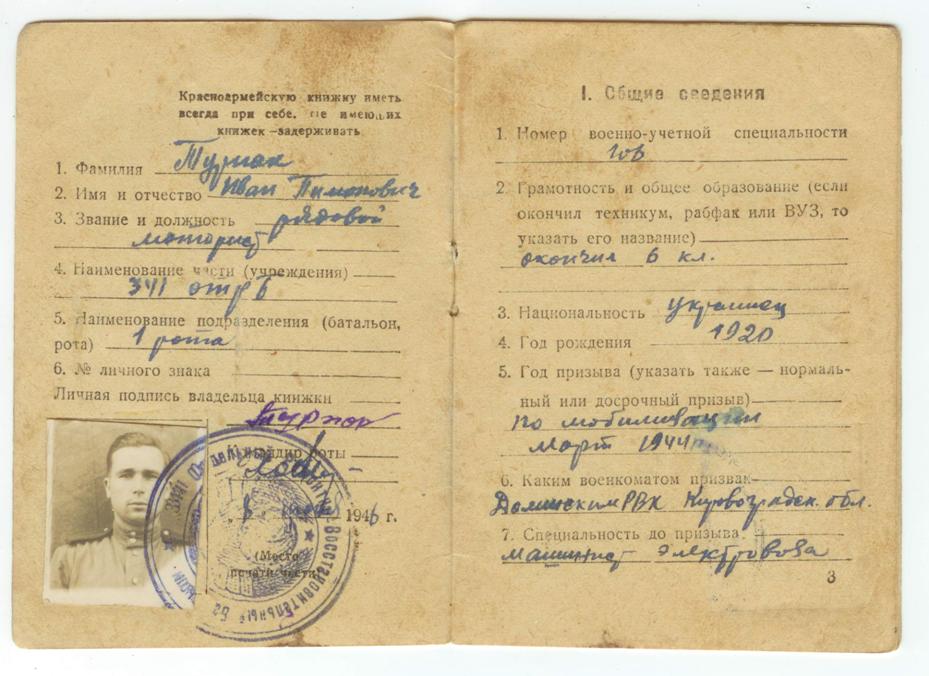 Красноармейскую книжку иметь
всегда при себе. Не имеющих
книжек –задерживать
1. Фамилия
2. Имя и отчество Иван Тимофович
3. Звание и должность рядовой
моторист
4. Наименование части (учреждения)
341 отрб
5. Наименование подразделения (батальон,
рота) 1 рота
6. № личного знака
Личная подпись владельца книжки
Командир роты
1946 г.
(Место
печати части)
Восстановительный
1. Общие сведения
1. Номер военно-учетной специальности
2. Грамотность и общее образование (если
окончил техникум, рабфак или ВУЗ, то
указать его название)
окончил 6 кл.
3. Национальность украинец
4. Год рождения 1920
5. Год призыва (указать также — нормаль-
ный или досрочный призыв)
по мобилизации
март 1944
6. Каким военкоматом призван
Долинским РВК Кировоградск. обл.
7. Специальность до призыва
машинист электровоза
3